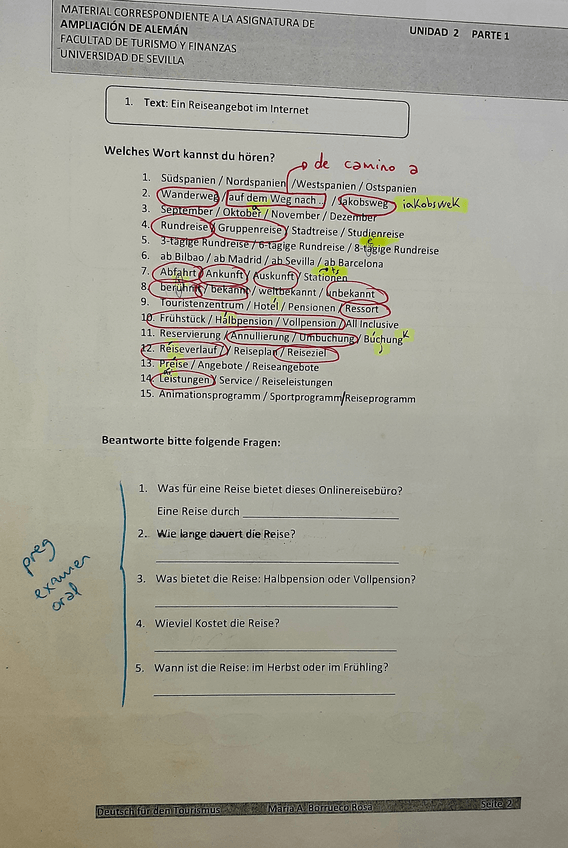 MATERIAL CORRESPONDIENTE A LA ASIGNATURA DE
AMPLIACIÓN DE ALEMÁN
UNIDAD 2 PARTE 1
FACULTAD DE TURISMO Y FINANZAS
UNIVERSIDAD DE SEVILLA
1. Text: Ein Reiseangebot im Internet
Welches Wort kannst du hören?
de camino a
1. Südspanien / Nordspanien /Westspanien / Ostspanien
2. Wanderweg / auf dem Weg nach .. / Jakobsweg iakobswek
3. September / Oktober / November / Dezember
4. Rundreise / Gruppenreise / Stadtreise / Studienreise
5. 3-tägige Rundreise / 6-tägige Rundreise / 8-tägige Rundreise
6. ab Bilbao / ab Madrid / ab Sevilla / ab Barcelona
7. Abfahrt / Ankunft / Auskunft / Stationen
8. berühmt / bekannt / weltbekannt / unbekannt
9. Touristenzentrum / Hotel / Pensionen / Ressort
10. Frühstück / Halbpension / Vollpension / All Inclusive
11. Reservierung / Annullierung / Umbuchung / Buchung
12. Reiseverlauf / Reiseplan / Reiseziel
13. Preise / Angebote / Reiseangebote
14. Leistungen / Service / Reiseleistungen
15. Animationsprogramm / Sportprogramm/Reiseprogramm
Beantworte bitte folgende Fragen:
1. Was für eine Reise bietet dieses Onlinereisebüro?
Eine Reise durch
2. Wie lange dauert die Reise?
3. Was bietet die Reise: Halbpension oder Vollpension?
4. Wieviel Kostet die Reise?
5. Wann ist die Reise: im Herbst oder im Frühling?
preg
examen
oral
Deutsch für den Tourismus María A. Borrueco Rosa Seite 2